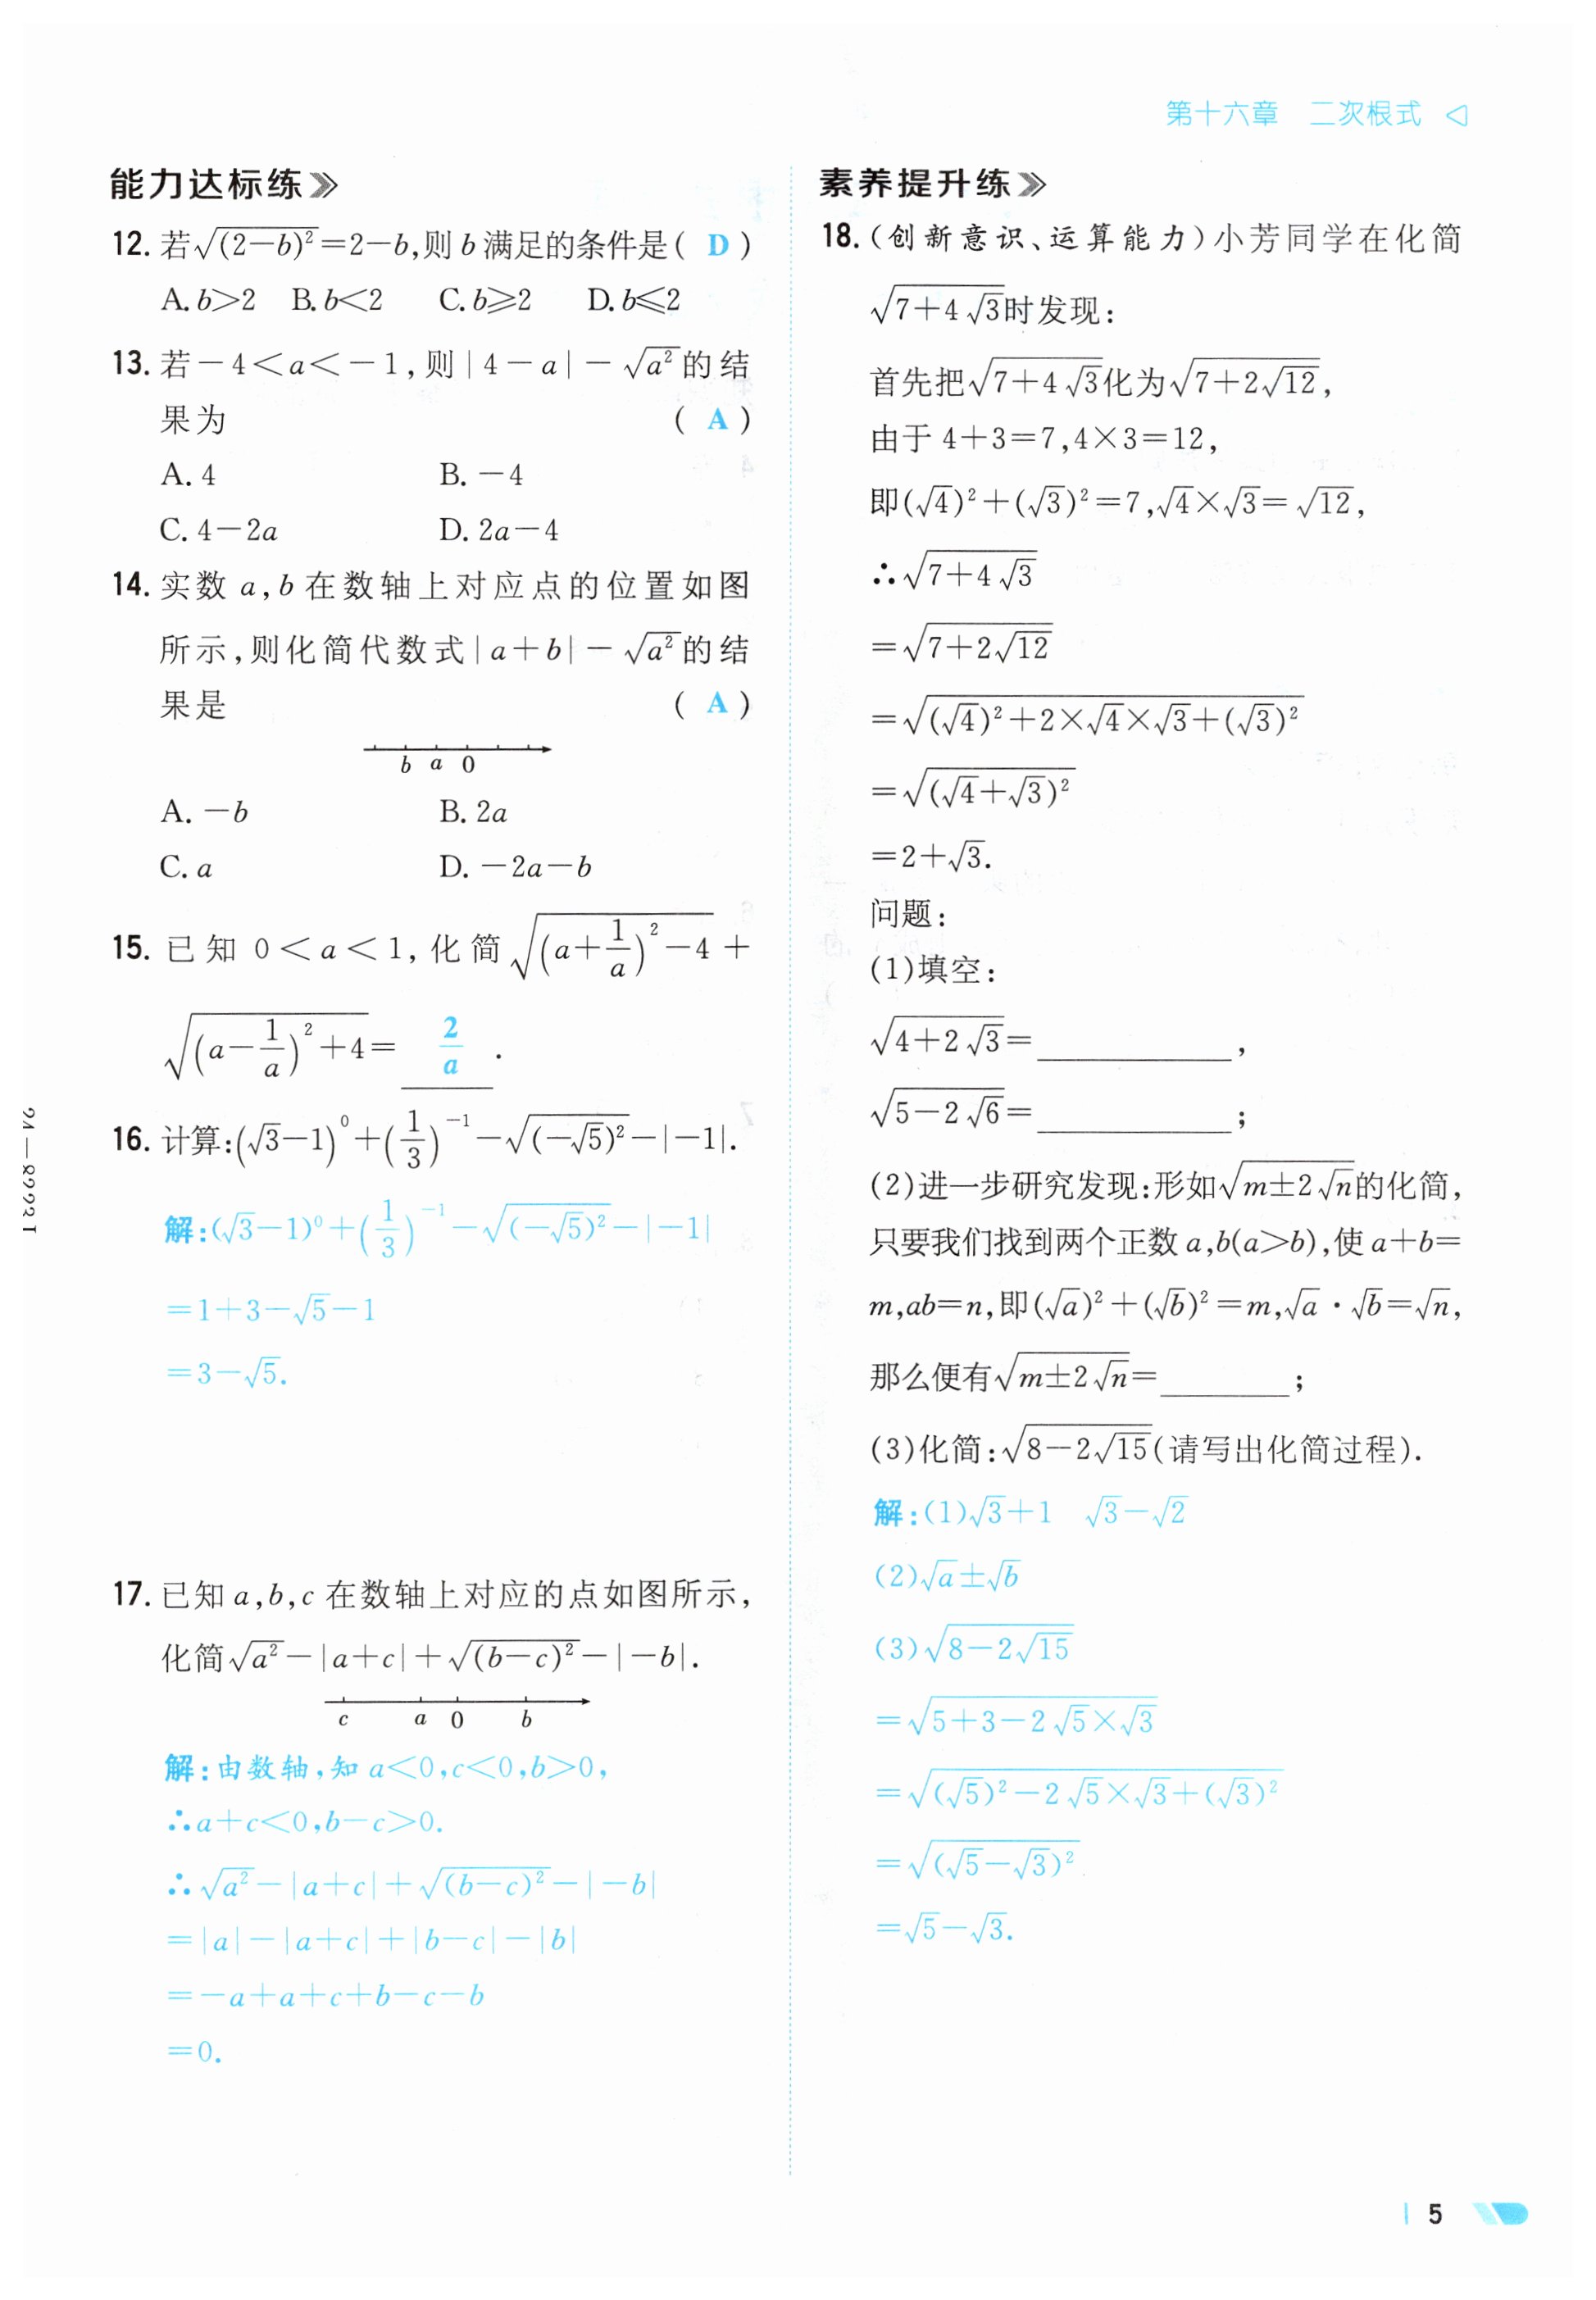 第十六章 二次根式
能力达标练
12. 若√(2-b)²=2-b,则b满足的条件是( D )
A. b>2 B. b<2 C. b≥2 D. b≤2
13. 若-4<a<-1,则|4-a|-√a²的结
果为 ( A )
A. 4 B. -4
C. 4-2a D. 2a-4
14. 实数a,b在数轴上对应点的位置如图
所示,则化简代数式|a+b|-√a²的结
果是 ( A )
b a 0
A. -b B. 2a
C. a D. -2a-b
15. 已知0<a<1,化简√((a+1/a)²-4)+
√((a-1/a)²+4)= 2/a .
16. 计算:(√3-1)⁰+(1/3)⁻¹-√(-√5)²-|-1|.
解:(√3-1)⁰+(1/3)⁻¹-√(-√5)²-|-1|
=1+3-√5-1
=3-√5.
17. 已知a,b,c在数轴上对应的点如图所示,
化简√a²-|a+c|+√(b-c)²-|-b|.
c a 0 b
解:由数轴,知a<0,c<0,b>0,
∴a+c<0,b-c>0.
∴√a²-|a+c|+√(b-c)²-|-b|
=|a|-|a+c|+|b-c|-|b|
=-a+a+c+b-c-b
=0.
素养提升练
18. (创新意识、运算能力)小芳同学在化简
√(7+4√3)时发现:
首先把√(7+4√3)化为√(7+2√12),
由于4+3=7,4×3=12,
即(√4)²+(√3)²=7,√4×√3=√12,
∴√(7+4√3)
=√(7+2√12)
=√((√4)²+2×√4×√3+(√3)²)
=√(√4+√3)²
=2+√3.
问题:
(1)填空:
√(4+2√3)=__________,
√(5-2√6)=__________;
(2)进一步研究发现:形如√(m±2√n)的化简,
只要我们找到两个正数a,b(a>b),使a+b=
m,ab=n,即(√a)²+(√b)²=m,√a·√b=√n,
那么便有√(m±2√n)=_______;
(3)化简:√(8-2√15)(请写出化简过程).
解:(1)√3+1 √3-√2
(2)√a±√b
(3)√(8-2√15)
=√(5+3-2√5×√3)
=√((√5)²-2√5×√3+(√3)²)
=√(√5-√3)²
=√5-√3.
5